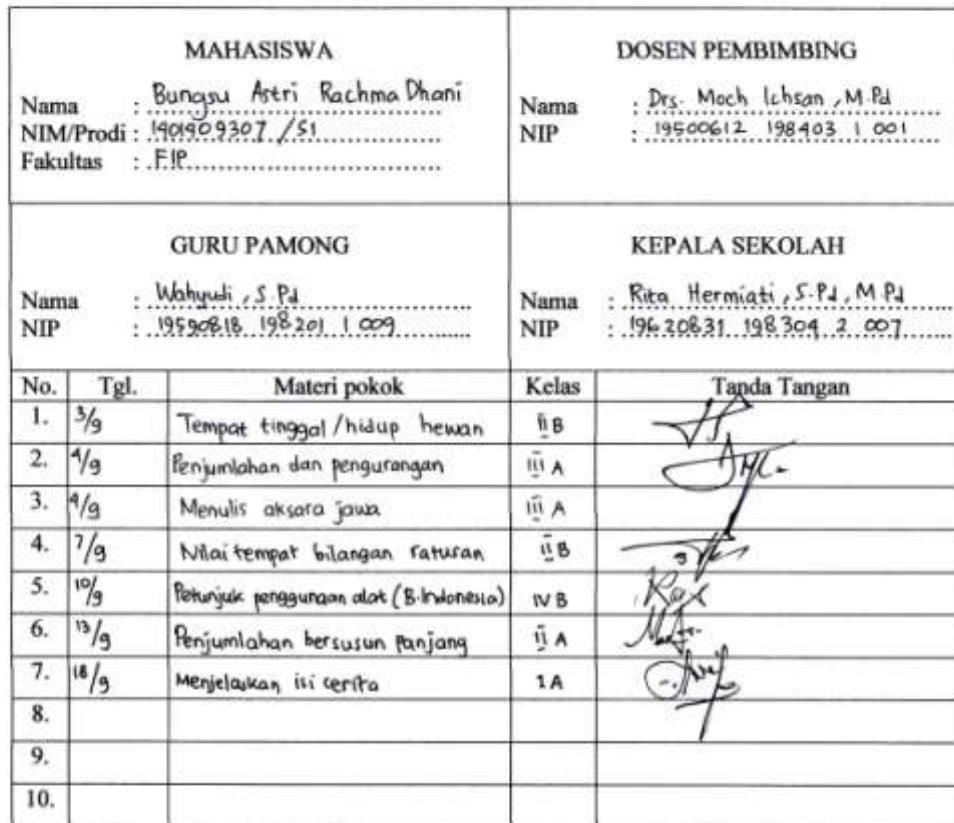 MAHASISWA
Nama : Bungsu Astri Rachma Dhani
NIM/Prodi : 1401409307 /S1
Fakultas : FIP
DOSEN PEMBIMBING
Nama : Drs. Moch Ichsan, M.Pd
NIP : 19500612 198403 1 001
GURU PAMONG
Nama : Wahyudi, S.Pd
NIP : 19590818 198201 1 009
KEPALA SEKOLAH
Nama : Rita Hermiati, S.Pd, M.Pd
NIP : 19620831 198304 2 007
No. Tgl. Materi pokok Kelas Tanda Tangan
1. 3/9 Tempat tinggal/hidup hewan II B
2. 4/9 Penjumlahan dan pengurangan III A
3. 4/9 Menulis aksara jawa III A
4. 7/9 Nilai tempat bilangan ratusan II B
5. 10/9 Petunjuk penggunaan alat (B.Indonesia) IV B
6. 13/9 Penjumlahan bersusun panjang II A
7. 18/9 Menjelaskan isi cerita I A
8.
9.
10.